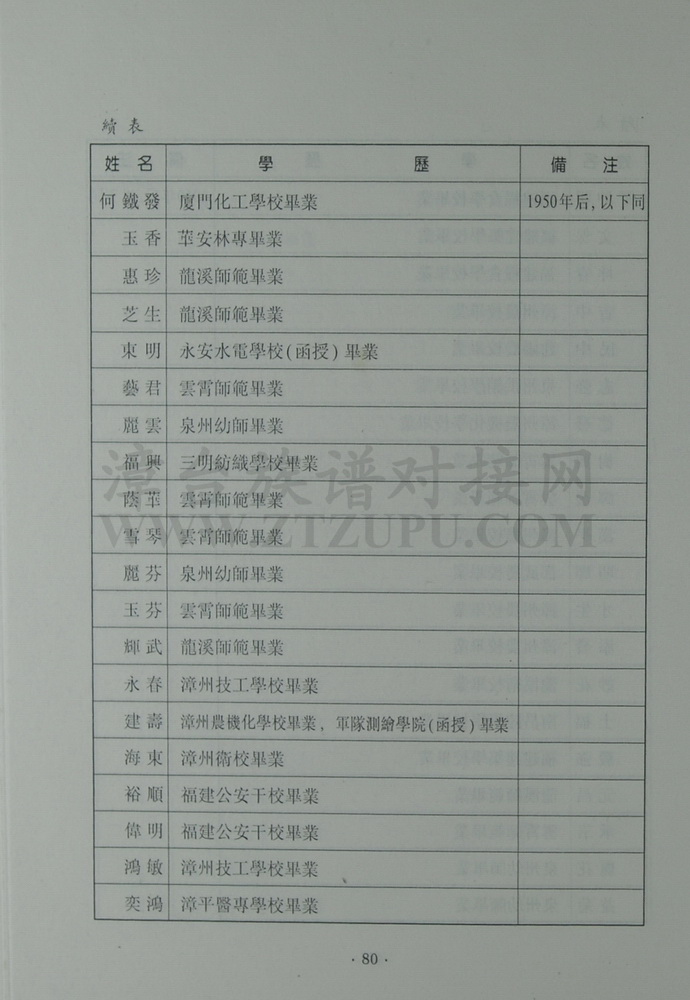 續表
姓名 學歷 備注
何鐵發 廈門化工學校畢業 1950年后,以下同
玉香 華安林專畢業
惠珍 龍溪師範畢業
芝生 龍溪師範畢業
東明 永安水電學校(函授)畢業
藝君 雲霄師範畢業
麗雲 泉州幼師畢業
福興 三明紡織學校畢業
蔭華 雲霄師範畢業
雪琴 雲霄師範畢業
麗芬 泉州幼師畢業
玉芬 雲霄師範畢業
輝武 龍溪師範畢業
永春 漳州技工學校畢業
建壽 漳州農機化學校畢業，軍隊測繪學院(函授)畢業
海東 漳州衛校畢業
裕順 福建公安干校畢業
偉明 福建公安干校畢業
鴻敏 漳州技工學校畢業
奕鴻 漳平醫專學校畢業
·80·
漳台族谱对接网
WWW.ZTZUPU.COM